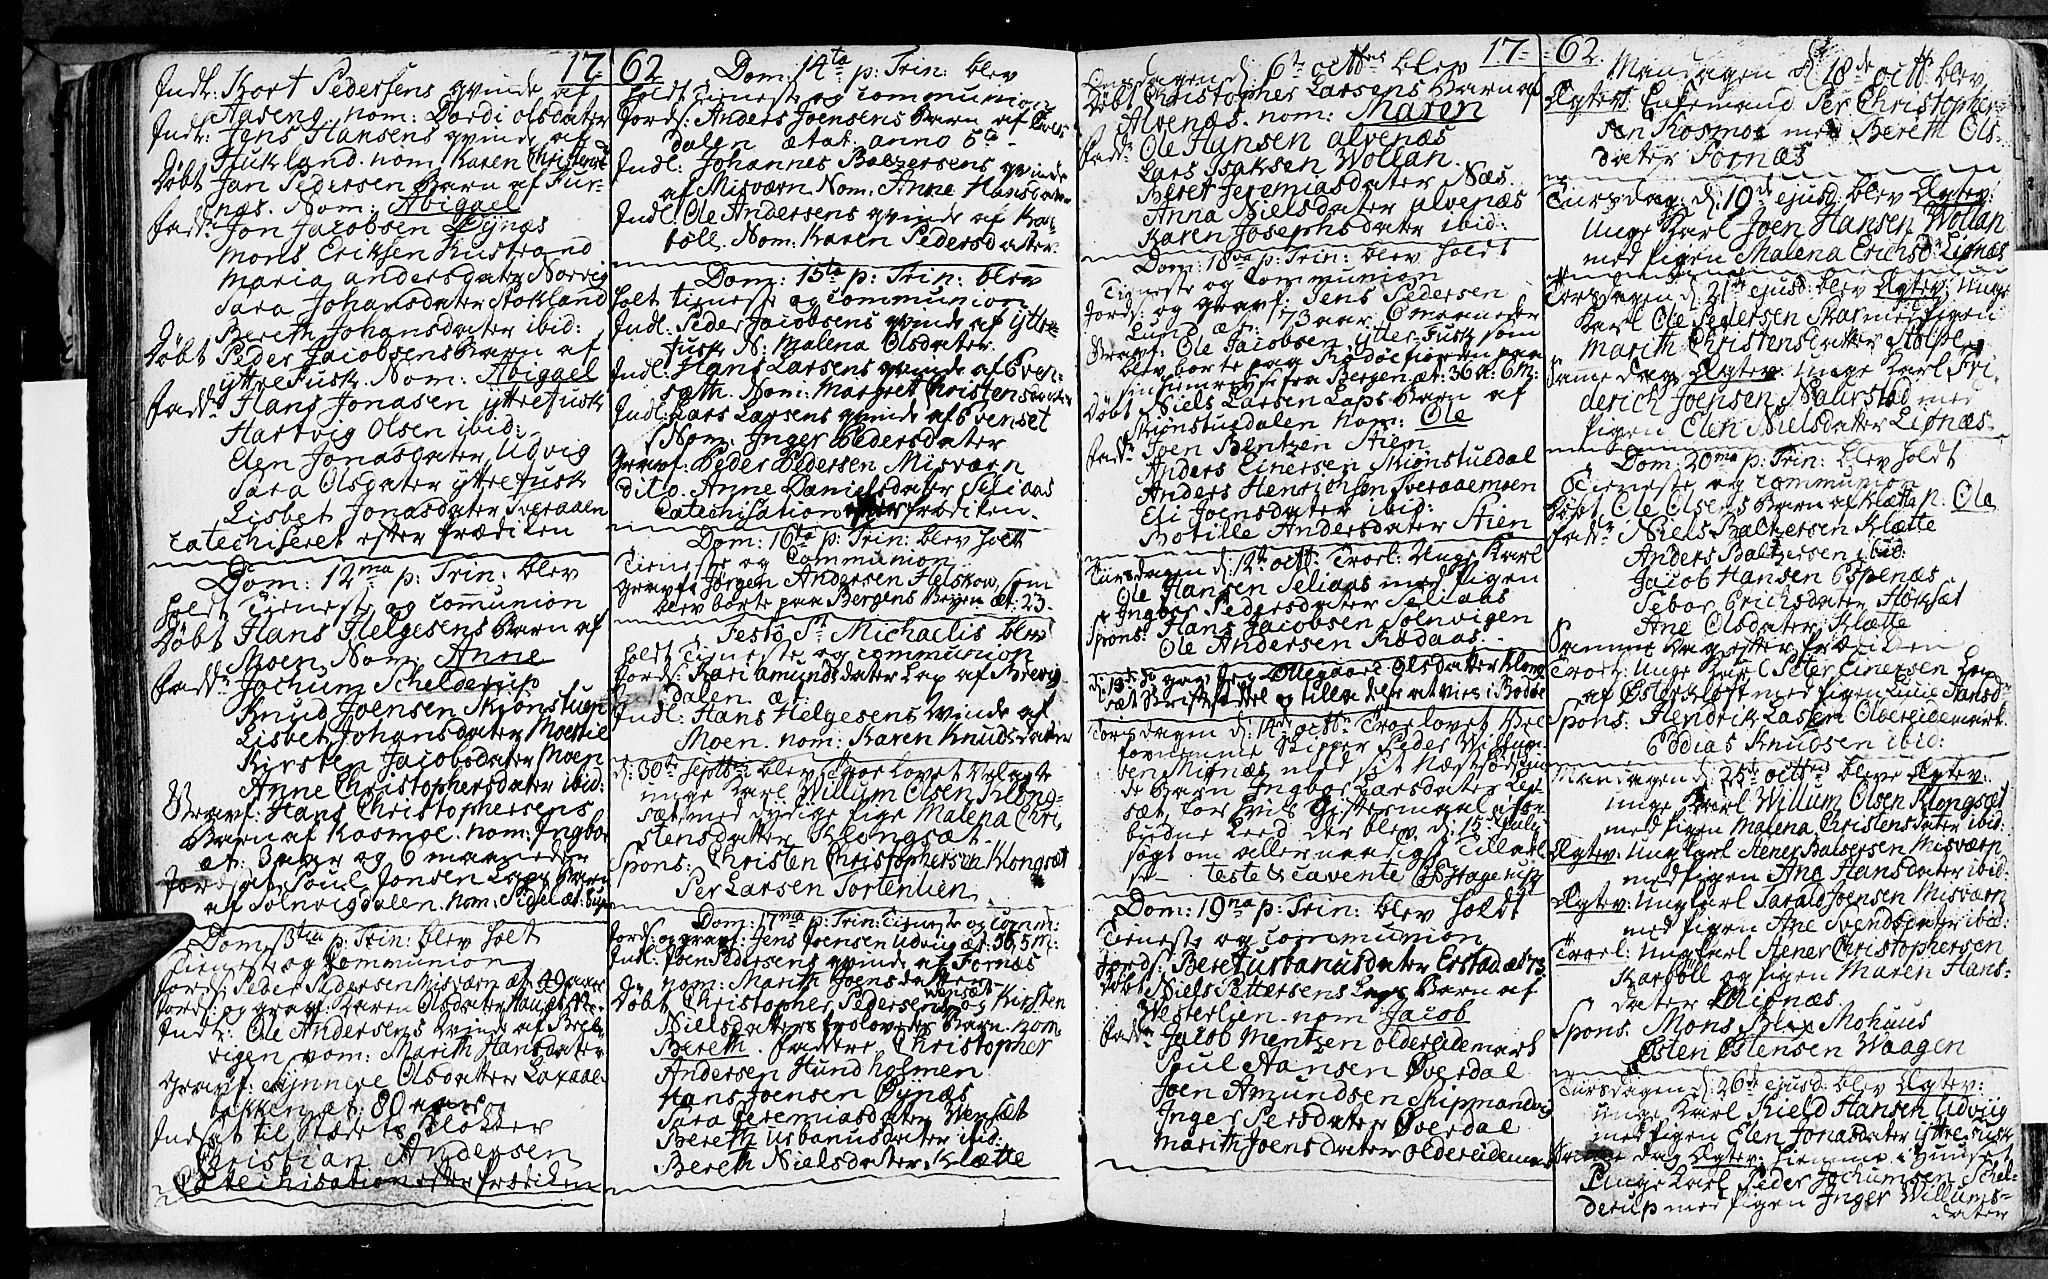 17 62
Indl: Kort Pedersens qvinde af
Aaseng. nom: Dordi Olsdater
Indl: Jens Hansens qvinde af
Hukland. nom Karen Christensd
Døbt Jan Pedersen Barn af Fur-
næs. Nom: Abigael
Fadd: Jon Jacobsen Øynæs
Mons Eriksen Kustrand
Maria andersdater Norvig
Sara Johansdater Stokland
Bereth Johansdater ibid:
Døbt Peder Jacobsens Barn af
yttre Fusk. Nom: Abigael
Fadd: Hans Jonasen yttre Fusk
Hartvig Olsen ibid:
Elen Jonasdater Udvig
Sara Olsdater yttre Fusk
Lisbet Jonasdater Sveraaen
Catechiseret efter Prædiken
Dom: 12ma p: Trin: blev
holdt Tieneste og Communion
Døbt Hans Helgesens Barn af
Moen Nom: Anne
Fadd: Jochum Schelderup
Knud Joensen Skiønstuen
Lisbet Johansdater Moestie
Kirsten Jacobsdater Moen
Anne Christophersdater ibid:
Gravf: Hans Christophersens
Barn af Kosmoe. nom: Ingbor
æt: 3 aar og 6 maaneder
Jords: Poul Jonsen Laps Barn
af Solvigdalen. nom:
Dom: 13tia p: Trin: blev holt
Tieneste og Communion
Jords: Peder Pedersen Misværn æt: 49 aar
Jords: og gravf: Karen Olsdater
Indl: Ole Andersens qvinde af Brei-
vigen nom: Marith Hansdater
Gravf: Synneve Olsdatter Laxaae-
bakken æt: 80 aar
Indsat til Stædets Klokker
Christian Andersen
Catechisation efter Prædiken
Dom: 14ta p: Trin: blev
holdt Tieneste og Communion
Jords: Anders Joensens Barn af
dalen ætat: anno 5to
Indl: Johannes Baltzersens qvinde
af Misværn Nom: Anne Hansdater
Indl: Ole Andersens qvinde af Kar-
bøll. Nom: Karen Pedersdater
Dom: 15ta p: Trin: blev
holt tieneste og Communion
Indl: Peder Jacobsens qvinde af Yttre
Fusk N: Malena Olsdater
Indl: Hans Larsens qvinde af Even-
sæth. Nom: Margret Christensdater
Indl: Lars Larsens qvinde af Evenset
Nom: Inger Pedersdater
Gravf: Peder Pedersen Misværn
dito. Anne Danielsdater Seliaas
Catechisation efter Prædiken.
Dom: 16ta p: Trin: blev holt
Tieneste og Communion
gravf: Jørgen Andersen Helskow, som
blev borte paa Bergens Reyen æt: 23.
Festo St Michaelis blev
holdt Tieneste og Communion
Jords: Kari Amundsdater Lap af Brevig-
dalen. æt:
Indl: Hans Helgesens qvinde af
Moen. nom: Karen Knudsdater
d: 30te Septbr: blev Troelovet Velagte
unge Karl Willum Olsen Klong-
sæt med dydige Pige Malena Chri-
stensdatter Klongsæt.
Spons: Christen Christophersen Klongsæt
Per Larsen Tortenlien
Dom: 17ma p: Trin: Tieneste og Comm:
Jords: og gravf: Jens Joensen Udvig æt: 56, 5 m:
Indl: Joen Pedersens qvinde af Fornæs
nom: Marith Joensdatter
Døbt Christopher Pedersen Wensæt og Kirsten
Nielsdaters trolovede Barn. nom:
Bereth. Faddere Christopher
Andersen Hundholmen
Hans Joensen Øynæs
Sara Jeremiasdater Wensæt
Bereth Urbanusdater ibid:
Bereth Nielsdater Klætte
17 62.
Tirsdagen d: 6te octbris blev
Døbt Christopher Larsens Barn af
Alvenæs. nom: Maren
Fadd: Ole Hansen alvenæs
Lars Isaksen Wollan.
Beret Jeremiasdater Næs.
Anna Nielsdater alvenæs
Karen Josephsdater ibid:
Dom: 18va p: Trin: blev holdt
Tieneste og Communion
Jords: og gravf: Jens Pedersen
Lund æt: 73 aar 6 maaneder
Gravf: Ole Jacobsen ytter Fusk som
blev borte paa Rødøefiorden paa
sin hiemreyse fra Bergen æt: 36 a: 6 m:
Døbt Niels Larsen Laps Barn af
Skiønstuedalen nom: Ole
Fadd: Joen Bentzen Stien
Anders Einersen Skiønstuedal
Anders Henrichsen Sveraaemoen
Eli Joensdater ibid:
Botille Andersdater Stien
Tirsdagen d: 12te octb: Troel: Unge Karl
Ole Hansen Seliaas med Pigen
Ingbor Pedersdater Seliaas
Spons: Hans Jacobsen Solvigen
Ole Andersen Rødaas.
d: 13de do gav jeg Ollegaard Olsdatter Klong-
sæt Skriftsæddel og tilladelse at vies i Bodøe
Torsdagen d: 14de octb: Troelovet Vel
fornemme Skipper Peder
ben Misnæs med sit Næstsødskin-
de Barn Ingbor Larsdater Lei-
sæt, for hvis Giftermaal i for-
budne Leed der blev d: 15 Julii
søgt om allernaadigst Tilladel
se Teste & cavente
Dom: 19na p: Trin: blev holdt
Tieneste og communion
Jords: Beret Urbanusdater Erstad æt: 73
Døbt Niels Pettersens Laps Barn af
Westerlien. nom Jacob
Fadd: Jacob Mentzen oldereidemark
Poul Hansen Øverdal
Joen Amundsen Skipmandvig
Inger Persdater Øverdal
Marith Joensdater oldereidemark
Mandagen d: 18de octb: blev
Ægtev: Enkemand Per Christopher-
sen Kosmoe med Bereth Ols-
dater Fornæs
Tirsdag: d: 19de ejusd: blev Ægtev:
Unge Karl Joen Hansen Wollan
med Pigen Malena Erichsd: Leifnæs
Torsdagen d: 21de ejusd: blev Ægtev: Unge
Karl Ole Pedersen Skar med Pigen
Marith Christensdatter Stolpe
Samme dag Ægtev: Unge Karl Fri-
derich Joensen Naurstad med
Pigen Elen Nielsdater Leifnæs.
Dom: 20ma p: Trin: blev holdt
Tieneste og communion
Døbt Ole Olsens Barn af Klætte N: Ole
Fadd: Niels Baltzersen Klætte
Anders Baltzersen ibid:
Jacob Hansen Espenæs
Sebor Erichsdater Høksæt
Ane Olsdater Klætte
Samme Dag efter Prædiken
Troel: Unge Karl Peter Einersen Lap
af Østerkløft med Pigen Lucie Hansd:
Spons: Hendrik Lassen Oldereidemark.
Eddias Knudsen ibid:
Mandagen d: 25de octbris bleve Ægtev:
unge Karl Willum Olsen Klongsæt
med Pigen Malena Christensdater ibid:
Ægtev: Ung Karl Aener Baltsersen Misværn
med Pigen Ane Hansdater ibid:
Ægtev: Ungkarl Harald Joensen Misværn
med Pigen Ane Svendsdater ibid:
Troel: Ungkarl Aener Christophersen
Karbøll og Pigen Maren Hans-
dater Misnæs
Spons. Mons Blix Mohuus
Østen Østensen Waagen
Tirsdagen d: 26de ejusd: blev Ægtev:
unge Karl Kield Hansen Udviig
med Pigen Elen Jonasdater yttre Fusk
Samme dag Ægtev: hiemme i Huuset
Unge Karl Peder Jochumsen Schel-
derup med Pigen Inger Willums-
dater